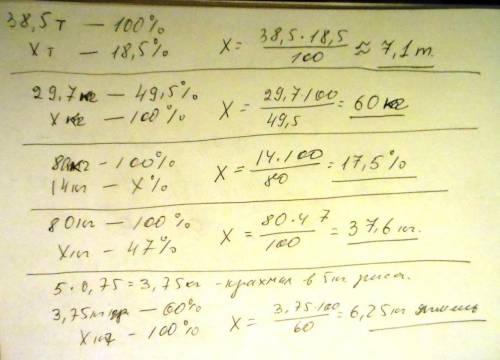 38,5 т — 100%
X т — 18,5% X = 38,5·18,5 / 100 ≈ 7,1 т.
29,7 кг — 49,5%
X кг — 100% X = 29,7·100 / 49,5 = 60 кг
80 кг - 100%
14 кг — X% X = 14·100 / 80 = 17,5%
80 кг — 100%
X кг — 47% X = 80·47 / 100 = 37,6 кг.
5·0,75 = 3,75 кг - крахмал в 5 кг риса.
3,75 кг — 60%
X кг - 100% X = 3,75·100 / 60 = 6,25 кг ячмень